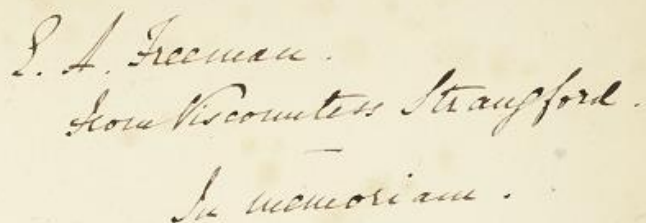 E. A. Freeman.
from Viscountess Strangford.
—
In memoriam.